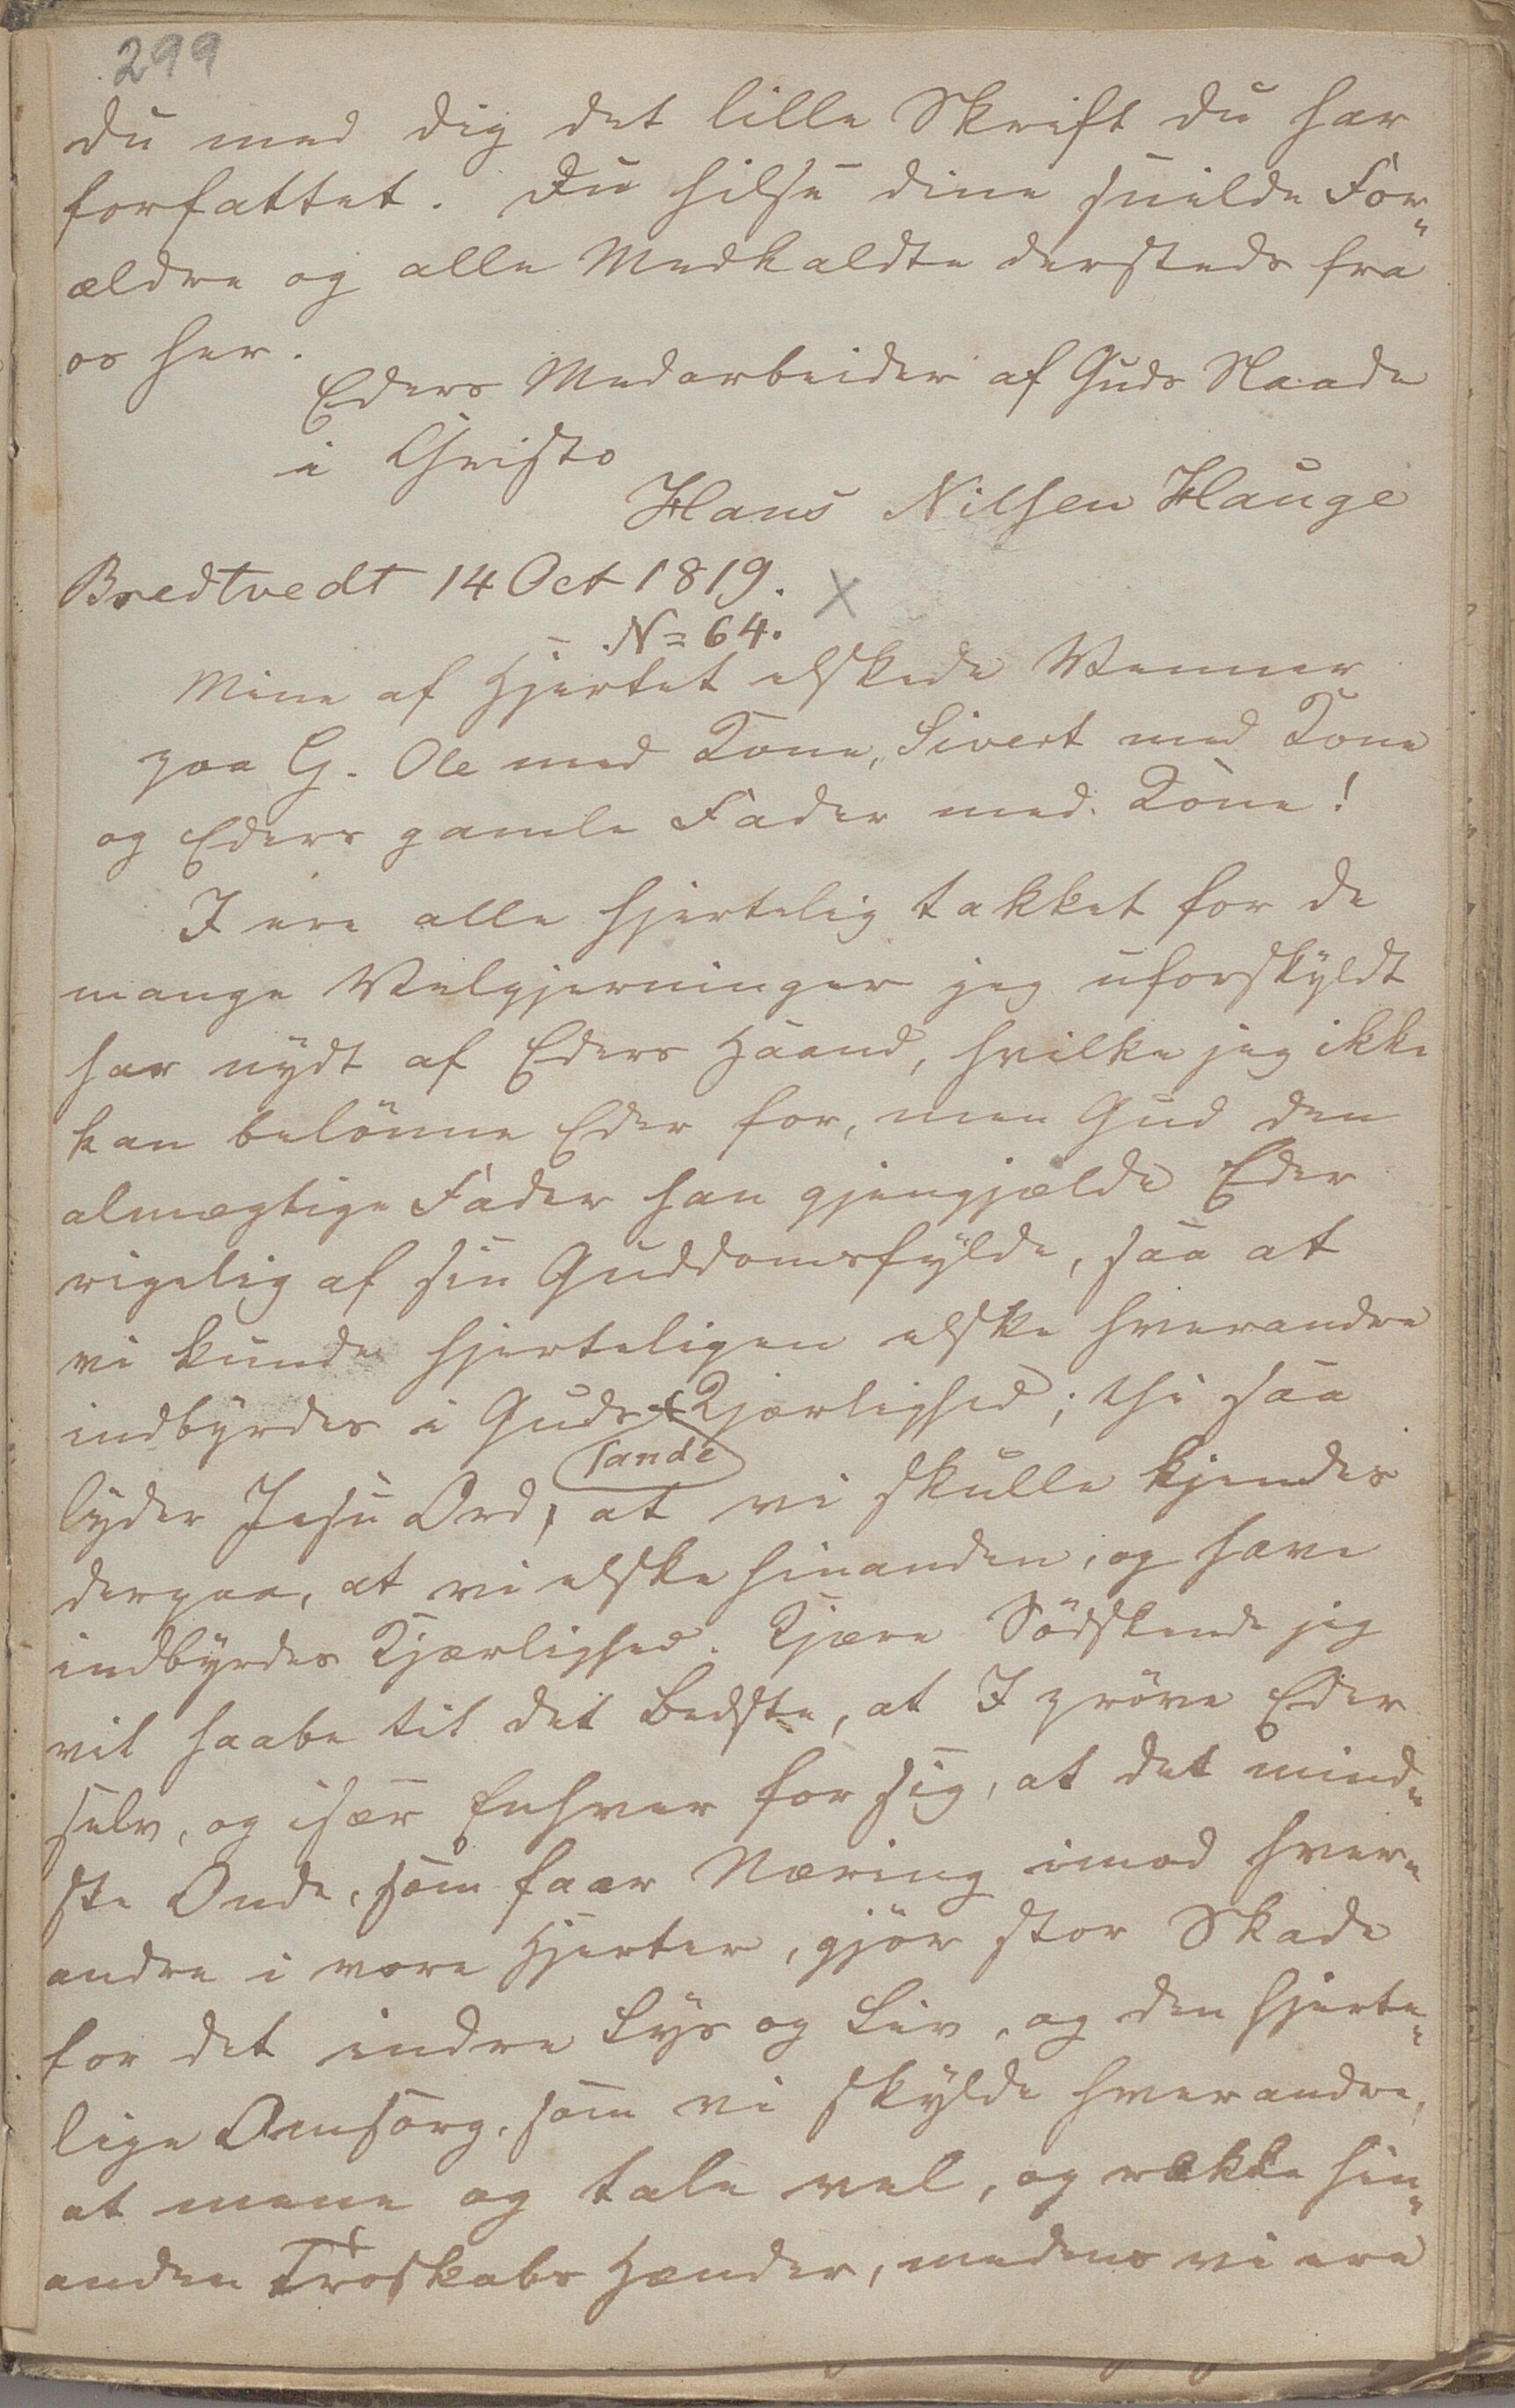 299
du med dig det lille Skrift du har
forfattet. Du hilse dine snilde For„
ældre og alle Medkaldte dersteds fra
os her.
Eders Medarbeider af Guds Naade
i Christo
Hans Nilsen Hauge
Bredtvedt 14 Oct 1819.
N= 64.
Mine af Hjertet elskede Venner
paa G. Ole med Kone, Sivert med Kone
og Eders gamle Fader med Kone!
I ere alle hjertelig takket for de
mange Velgjerninger jeg uforskyldt
har nydt af Eders Haand, hvilke jeg ikke
kan belönne Eder for, men Gud den
almægtige Fader han gjengjælde Eder
rigelig af sin Guddomsfylde, saa at
vi kunde hjerteligen elske hverandre
indbyrdes i Guds Kjærlighed; thi saa
sande
lyder Jesu Ord, at vi skulle kjendes
derpaa, at vi elske hinanden, og have
indbyrdes Kjærlighed. Kjære Södskende jeg
vil haabe til det Bedste, at I pröve Eder
selv, og især Enhver for sig, at det mind„
ste Onde, som faar Næring imod hver„
andre i vore Hjerter, gjör stor Skade
for det indre Lys og Liv, og den hjerte„
lige Omsorg, som vi skylde hverandre,
at mene og tale vel, og række hin„
anden Troskabs Hænder, medens vi ere